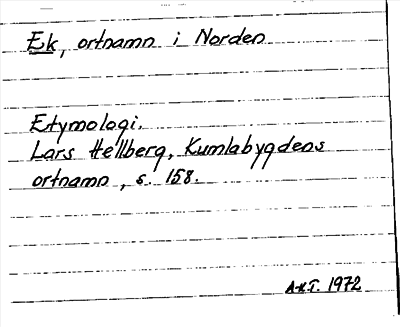 Ek, ortnamn i Norden
Etymologi.
Lars Hellberg, Kumlabygdens
ortnamn, s. 158.
A.K.T. 1972